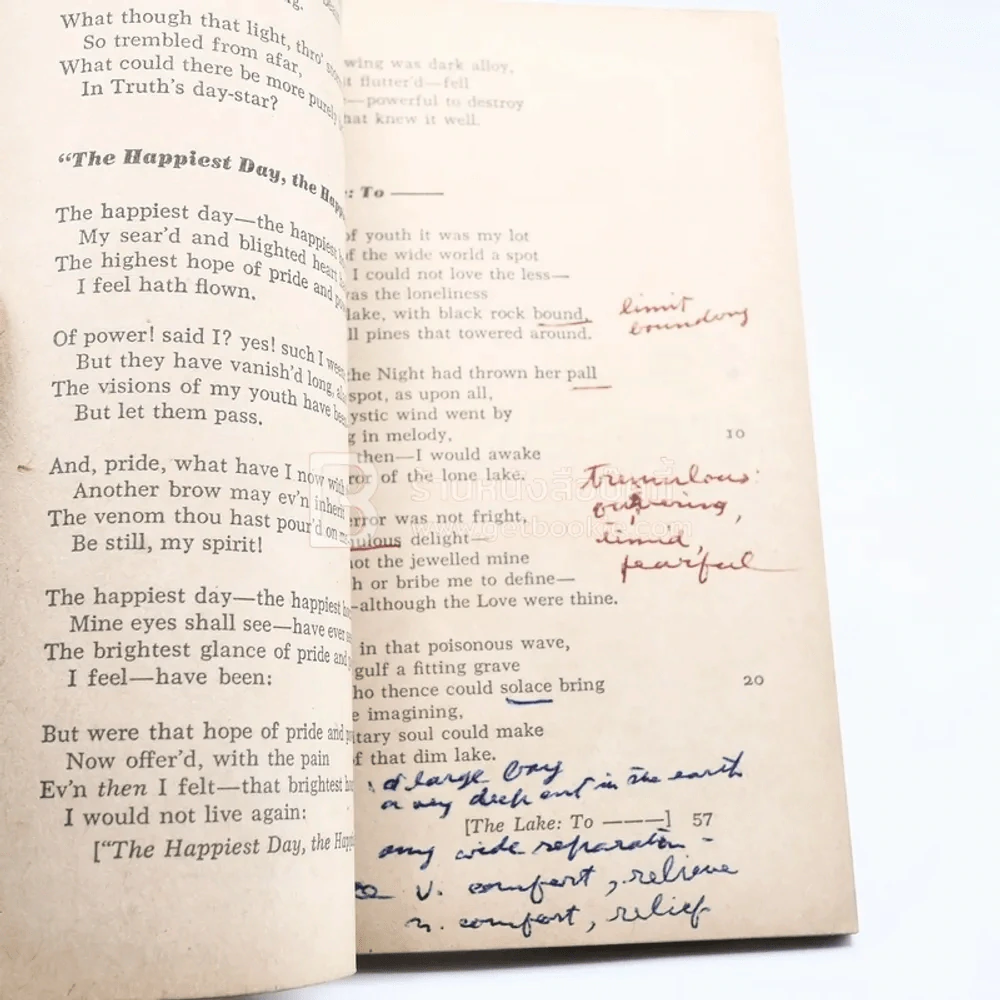 What though that light, thro'
So trembled from afar,
What could there be more purely
In Truth's day-star?
"The Happiest Day, the Happ
The happiest day—the happiest
My sear'd and blighted heart
The highest hope of pride and
I feel hath flown.
Of power! said I? yes! such I ween
But they have vanish'd long,
The visions of my youth have been
But let them pass.
And, pride, what have I now with
Another brow may ev'n inherit
The venom thou hast pour'd on me
Be still, my spirit!
The happiest day—the happiest
Mine eyes shall see—have ever
The brightest glance of pride and
I feel—have been:
But were that hope of pride and
Now offer'd, with the pain
Ev'n then I felt—that brightest
I would not live again:
["The Happiest Day, the Happi
wing was dark alloy,
flutter'd—fell
—powerful to destroy
hat knew it well.
: To ———
of youth it was my lot
f the wide world a spot
I could not love the less—
was the loneliness
lake, with black rock bound, limit
ll pines that towered around. boundary
the Night had thrown her pall
spot, as upon all,
ystic wind went by
g in melody, 10
then—I would awake
ror of the lone lake. tremulous:
quivering,
error was not fright,
ulous delight— timid,
not the jewelled mine fearful
h or bribe me to define—
—although the Love were thine.
in that poisonous wave,
gulf a fitting grave
ho thence could solace bring 20
e imagining,
itary soul could make
f that dim lake.
a large bay
or very deep cut in the earth
[The Lake: To ———] 57
any wide separation -
v. comfort, relieve
n. comfort, relief
B ร้านหนังสือบุ๊คกี้
www.getbookie.com